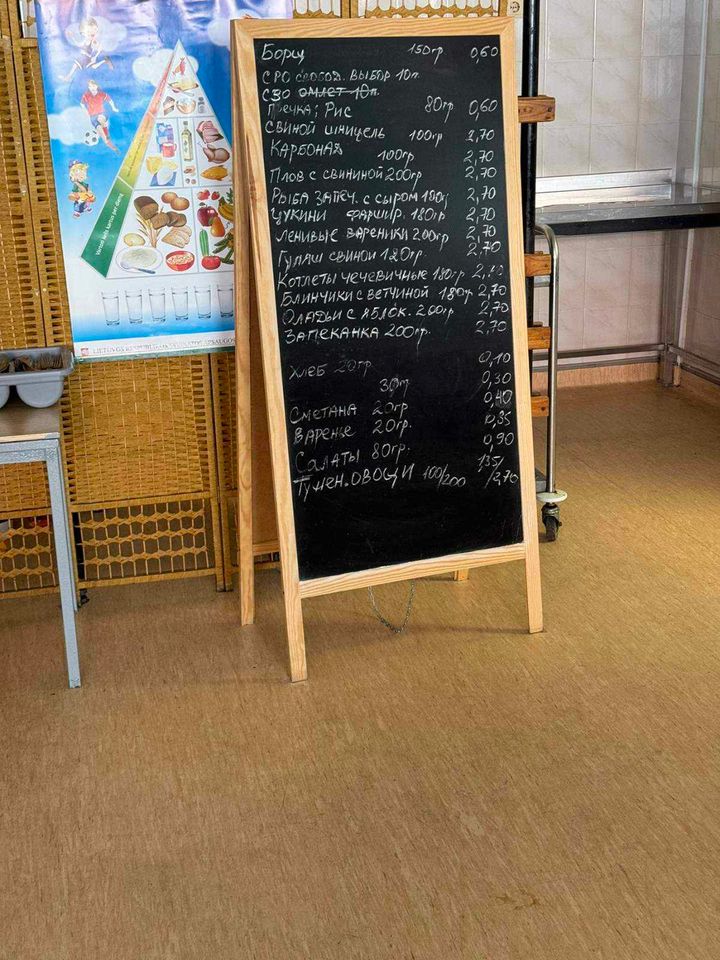 Борщ 150гр 0,60
СРО свобод. выбор 10п.
СЗО омлет 10п.
Гречка; Рис 80гр 0,60
Свиной шницель 100гр 2,70
Карбонад 100гр 2,70
Плов с свининой 200гр 2,70
Рыба запеч. с сыром 180г 2,70
Цукини фаршир. 180гр 2,70
Ленивые вареники 200гр 2,70
Гуляш свиной 120гр. 2,70
Котлеты чечевичные 180гр 2,70
Блинчики с ветчиной 180гр 2,70
Оладьи с яблок. 200гр 2,70
Запеканка 200гр. 2,70
Хлеб 20гр 0,10
30гр 0,30
0,40
Сметана 20гр 0,35
Варенье 20гр. 0,90
Салаты 80гр.
Тушен. овощи 100/200 135/2,70